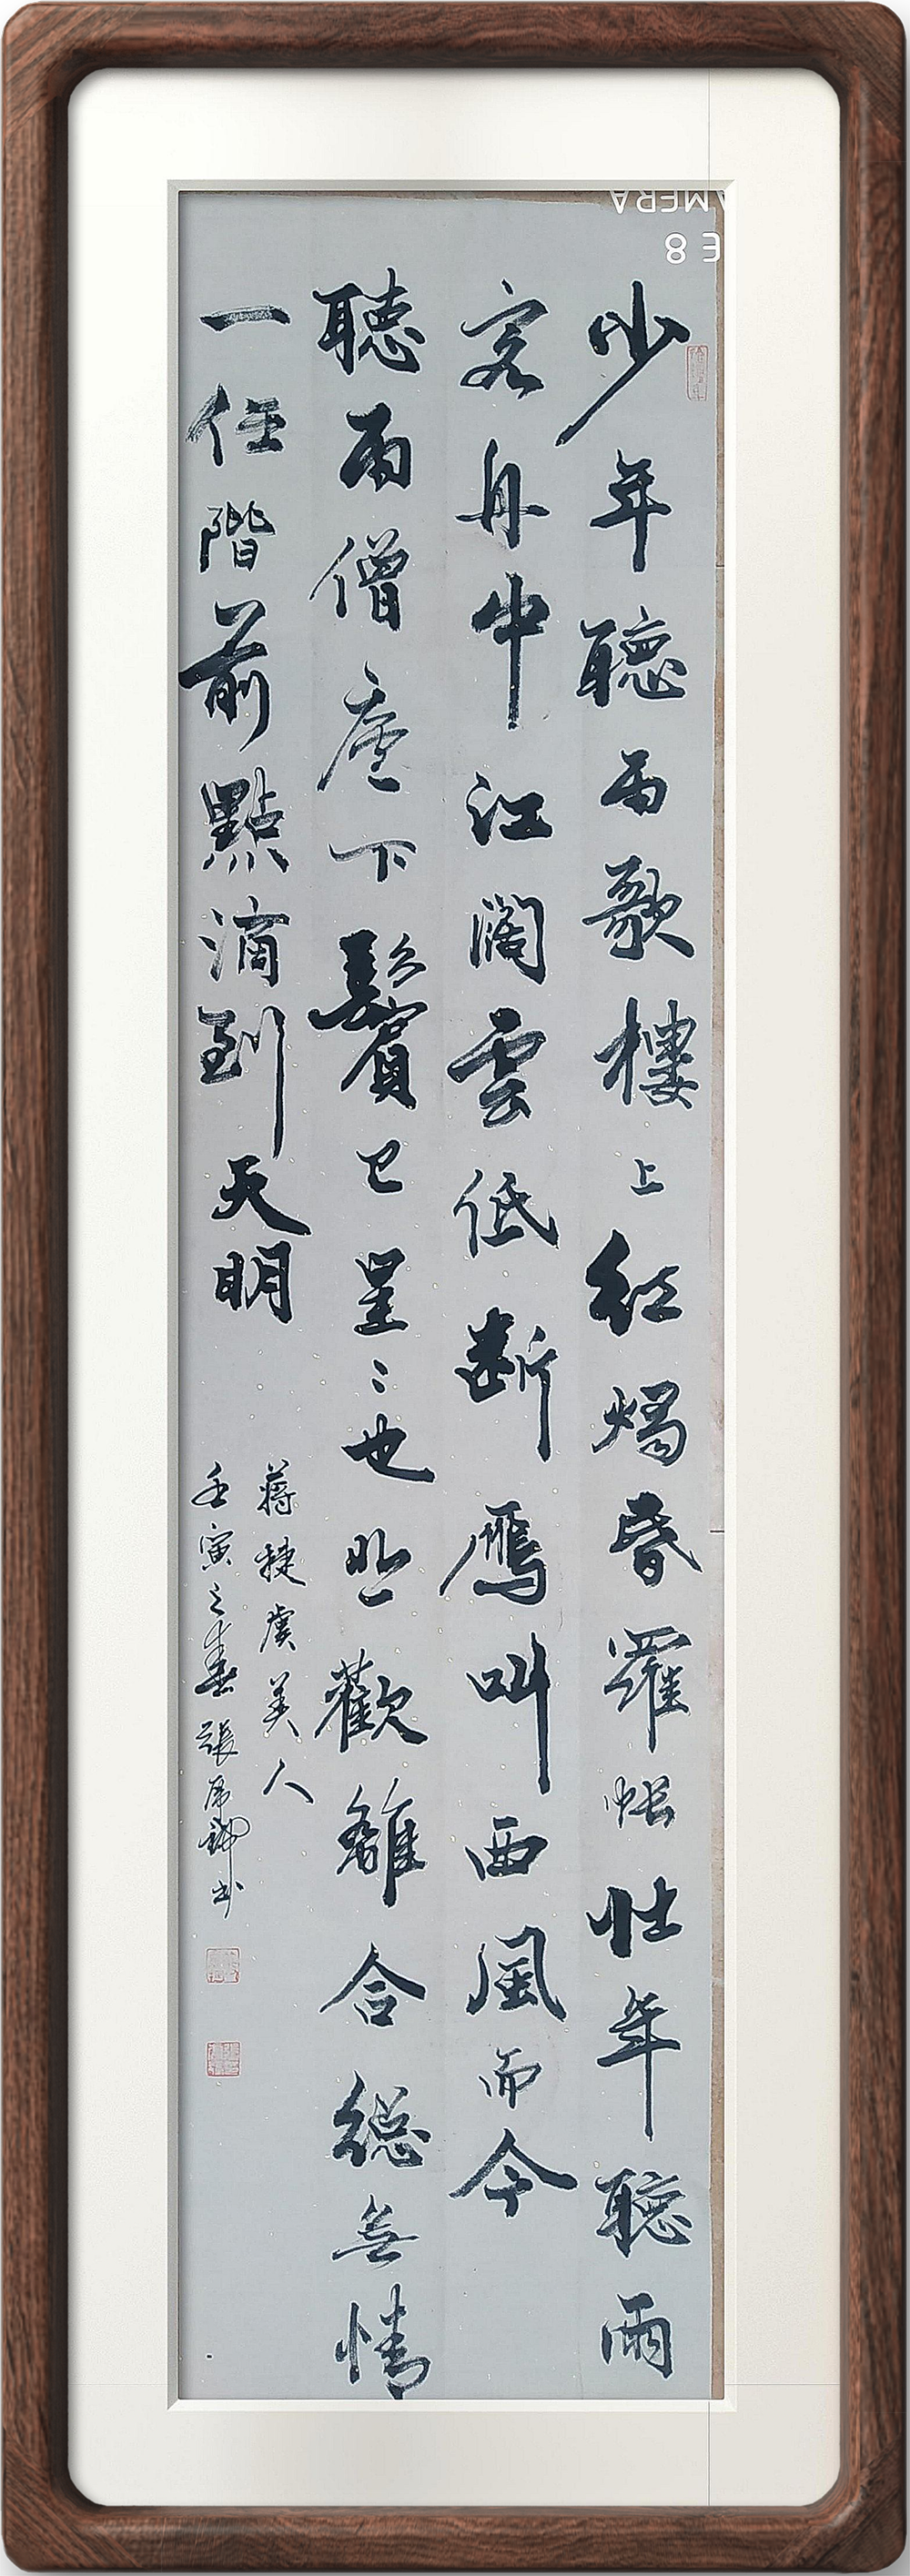 少年聽雨歌樓上紅燭昏羅帳壯年聽雨
客舟中江闊雲低斷鴈叫西風而今
聽雨僧廬下鬢已星〻也悲歡離合總無情
一任階前點滴到天明
蔣捷虞美人
壬寅之春張
AMERA
E 8